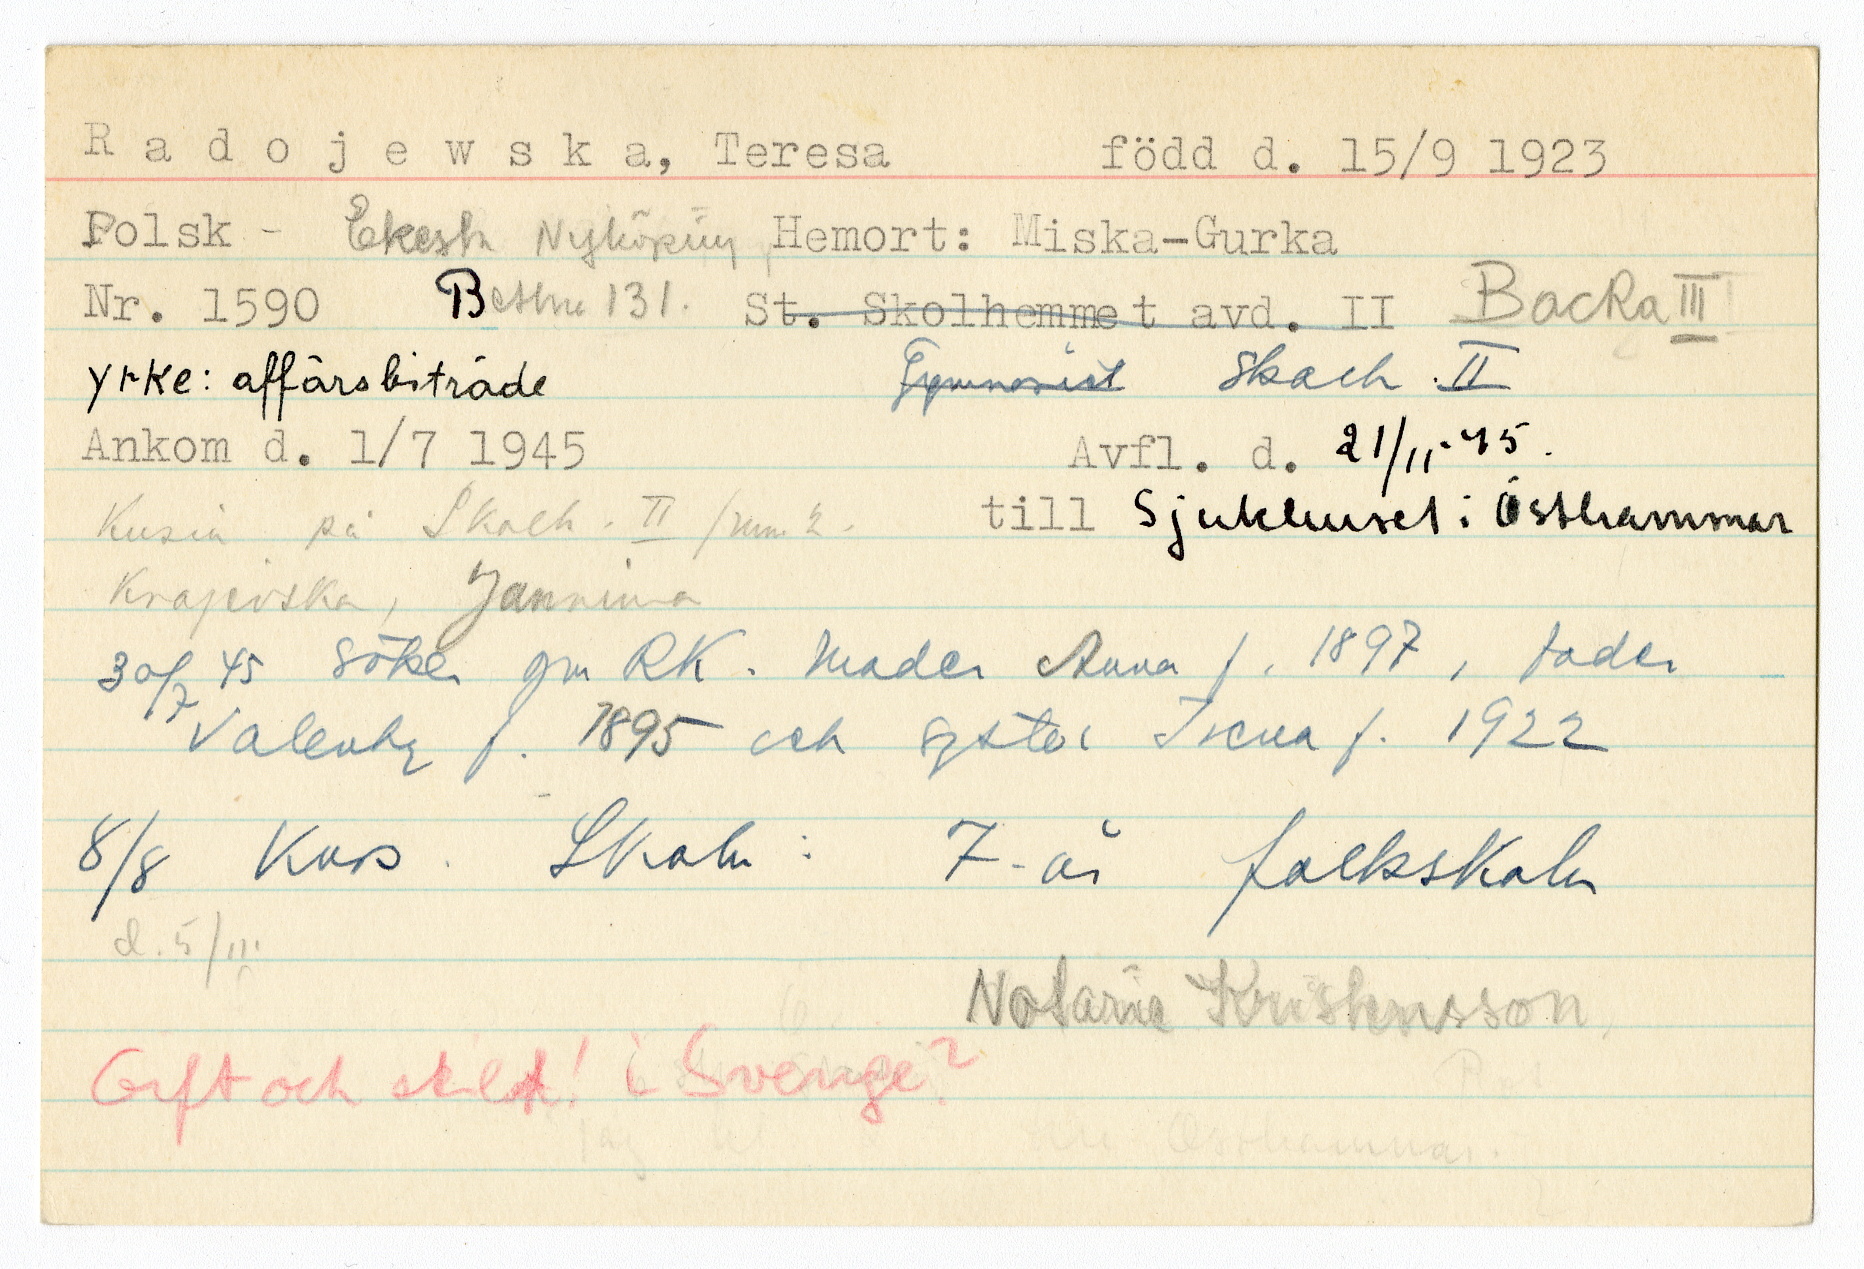 Radojewska, Teresa född d. 15/9 1923
Polsk - Nyköping, Hemort: Miska-Gurka
Nr. 1590 B 131. St. Skolhemmet avd. II Backa III
yrke: affärsbiträde Skolh. II
Ankom d. 1/7 1945 Avfl. d. 21/11-45.
Kusin på Skolh. II /rum 2. till Sjukhuset i Östhammar
Krajevska, Jannina
30/7 45 söker gm RK. Moder Anna f. 1897, fader
f. 1895 och syster Irena f. 1922
8/8 Kurs. Skola: 7-år folkskola
d. 5/11.
Notarie Kristensson
Gift och skild! i Sverige?
Östhammar.